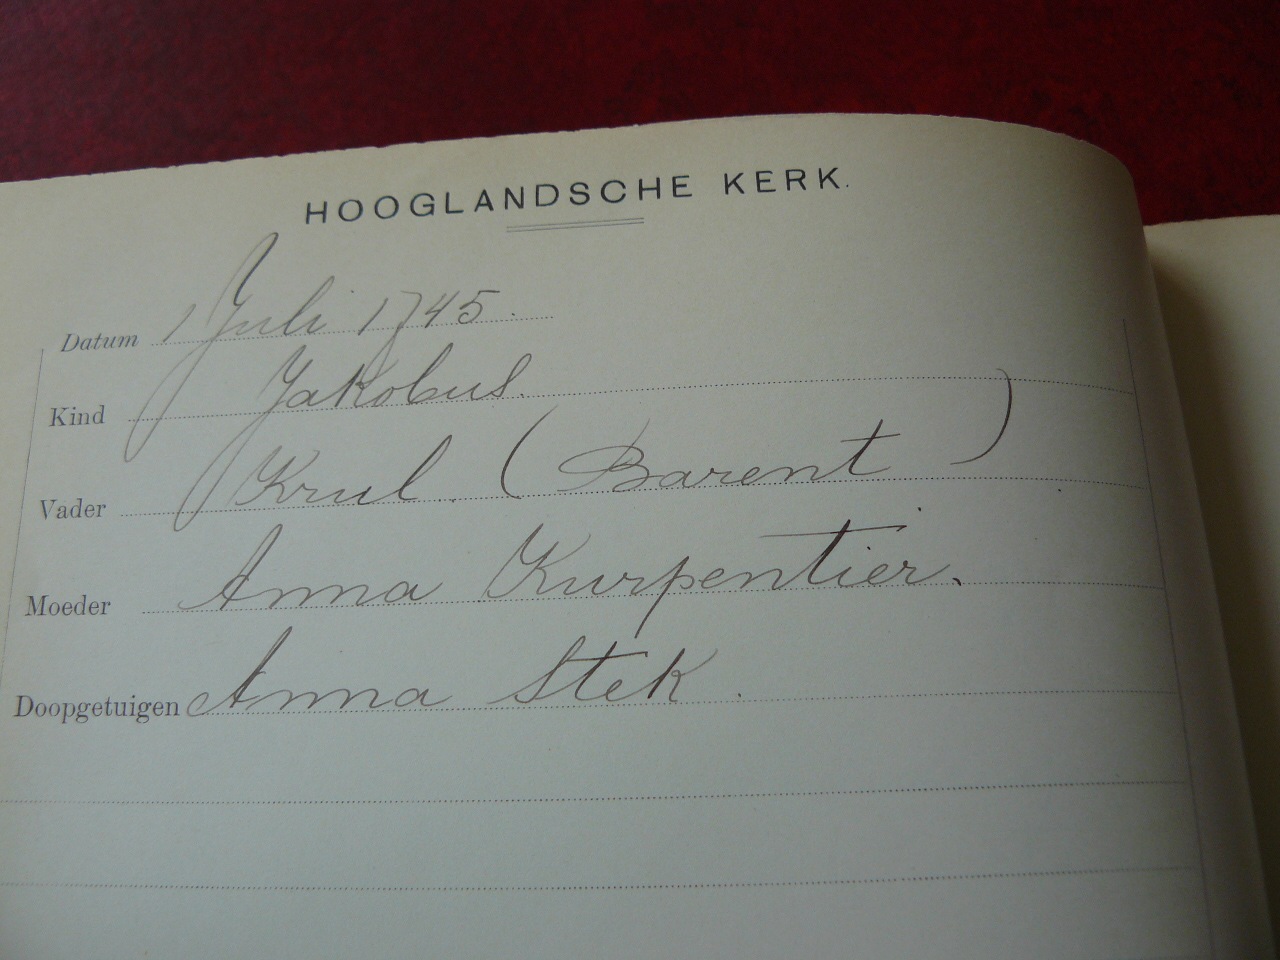 HOOGLANDSCHE KERK.
Datum 1 Juli 1745.
Kind Jakobus.
Vader Krul. (Barent)
Moeder Anna Kurpentier.
Doopgetuigen Anna Stek.